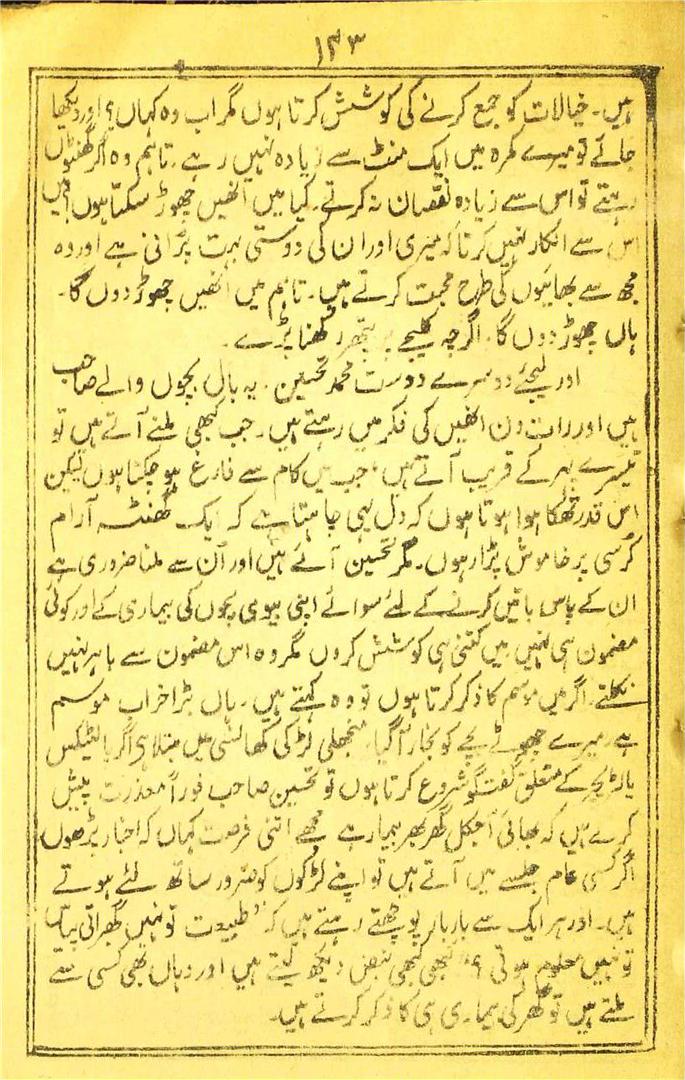 ۱۴۳
ہیں۔ خیالات کو جمع کرنے کی کوشش کرتا ہوں مگر اب وہ کہاں؟ اور دیکھا
جائے تو میرے کمرہ میں ایک منٹ سے زیادہ نہیں رہے۔ تاہم وہ اگر گھنٹوں
رہتے تو اس سے زیادہ نقصان نہ کرتے۔ کیا میں انھیں چھوڑ سکتا ہوں؟ میں
اس سے انکار نہیں کرتا کہ میری اور ان کی دوستی بہت پُرانی ہے اور وہ
مجھ سے بھائیوں کی طرح محبت کرتے ہیں۔ تاہم میں انھیں چھوڑ دوں گا۔
ہاں چھوڑ دوں گا۔ اگرچہ کلیجے پر پتھر رکھنا پڑے۔
اور لیجئے دوسرے دوست محمد تحسین۔ یہ بال بچوں والے صاحب
ہیں اور رات دن انھیں کی فکر میں رہتے ہیں۔ جب کبھی ملنے آتے ہیں تو
تیسرے پہر کے قریب آتے ہیں، جب میں کام سے فارغ ہو چکتا ہوں لیکن
اس قدر تھکا ہوا ہوتا ہوں کہ دل یہی چاہتا ہے کہ ایک گھنٹہ آرام
کرسی پر خاموش پڑا رہوں۔ مگر تحسین آئے ہیں اور اُن سے ملنا ضروری ہے
ان کے پاس باتیں کرنے کے لئے سوائے اپنی بیوی بچوں کی بیماری کے اور کوئی
مضمون ہی نہیں۔ میں کتنی ہی کوشش کروں مگر وہ اس مضمون سے باہر نہیں
نکلتے۔ اگر میں موسم کا ذکر کرتا ہوں تو وہ کہتے ہیں۔ ہاں بڑا خراب موسم
ہے۔ میرے چھوٹے بچے کو بخار آ گیا، منجھلی لڑکی کھانسی میں مبتلا ہی اگر پالیٹیکس
یا لٹریچر کے متعلق گفتگو شروع کرتا ہوں تو تحسین صاحب فوراً معذرت پیش
کرے ہیں کہ بھائی آجکل گھر بھر بیمار ہے مجھے اتنی فرصت کہاں کہ اخبار پڑھوں
اگر کسی عام جلسے میں آتے ہیں تو اپنے لڑکوں کو ضرور ساتھ لئے ہوتے
ہیں۔ اور ہر ایک سے بار بار پوچھتے رہتے ہیں کہ "طبیعت تو نہیں گھبراتی پیاس
تو نہیں معلوم ہوتی؟" کبھی کبھی نبض دیکھ لیتے ہیں اور وہاں بھی کسی سے
ملتے ہیں تو گھر کی بیماری ہی کا ذکر کرتے ہیں۔